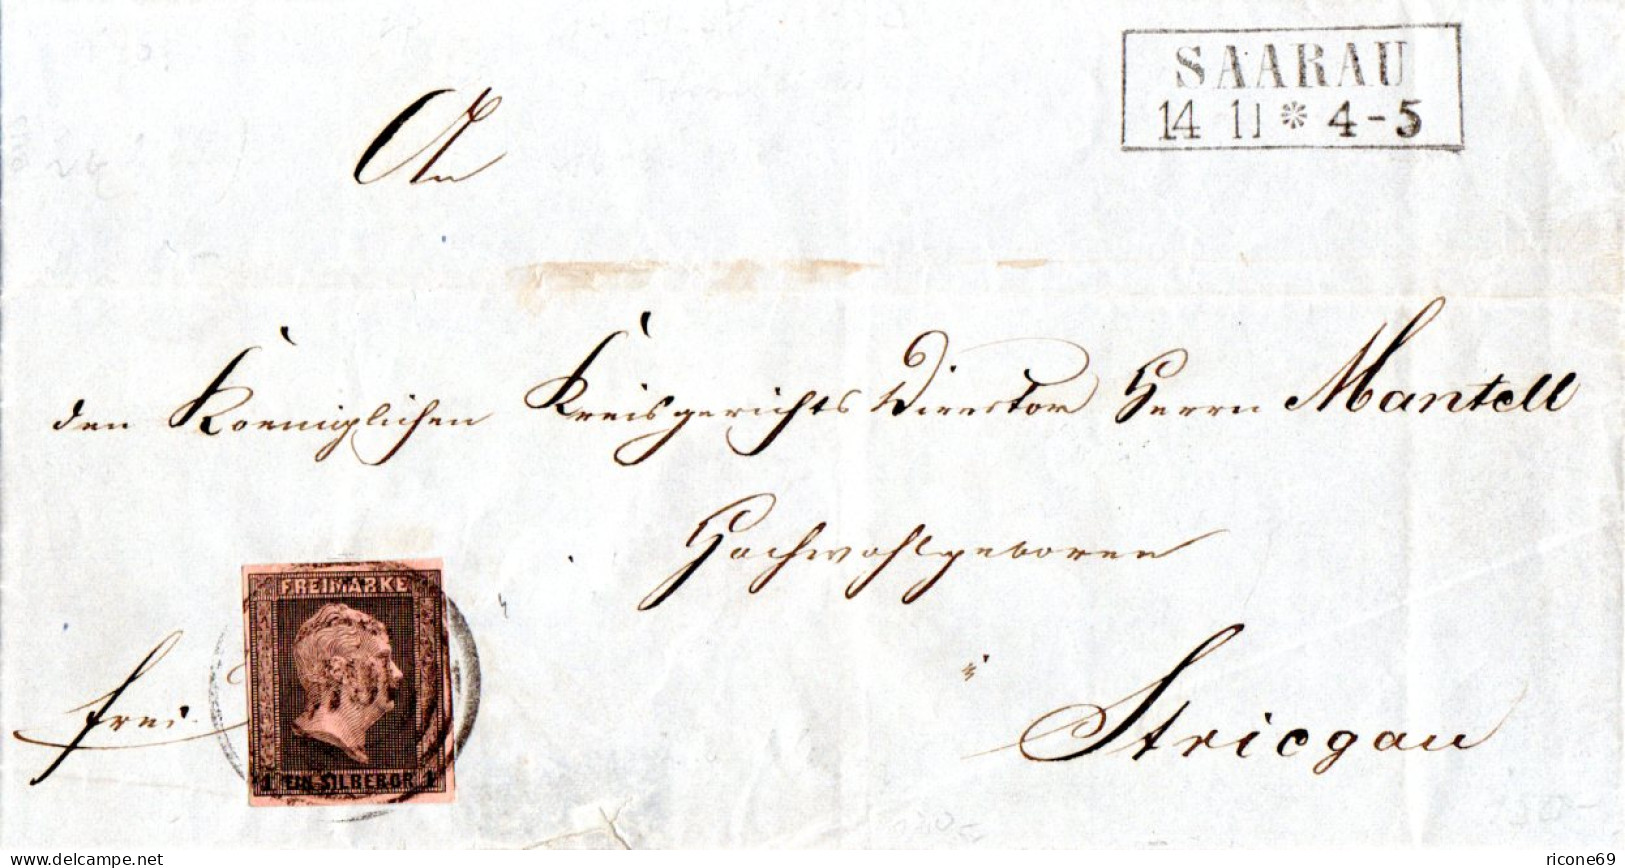 SAARAU
14 11 * 4-5
An
den Koeniglichen Kreisgerichts Director Herrn Mantell
Hochwohlgeboren
FREIMARKE
frei
Striegau
1 EIN SILBERGR. 1
www.delcampe.net
ricone69